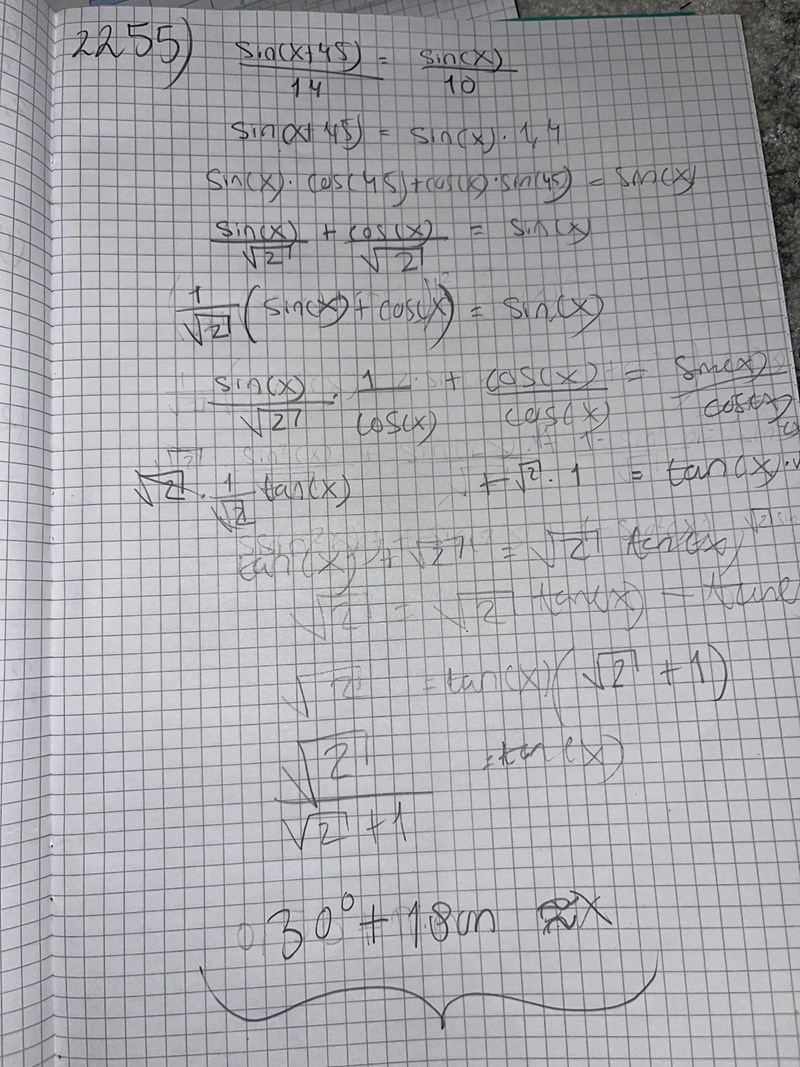 2255) sin(x+45)/14 = sin(x)/10
sin(x+45) = sin(x)·1,4
sin(x)·cos(45)+cos(x)·sin(45) = sin(x)
sin(x)/√2 + cos(x)/√2 = sin(x)
1/√2 (sin(x)+cos(x)) = sin(x)
sin(x)/√2 · 1/cos(x) + cos(x)/cos(x) = sin(x)/cos(x)
√2 · 1/√2 tan(x) + √2 · 1 = tan(x)·
tan(x) + √2 = √2 tan(x)
√2 = √2 tan(x) -
√2 = tan(x)(√2+1)
√2/(√2+1) = tan(x)
30° + 180n x